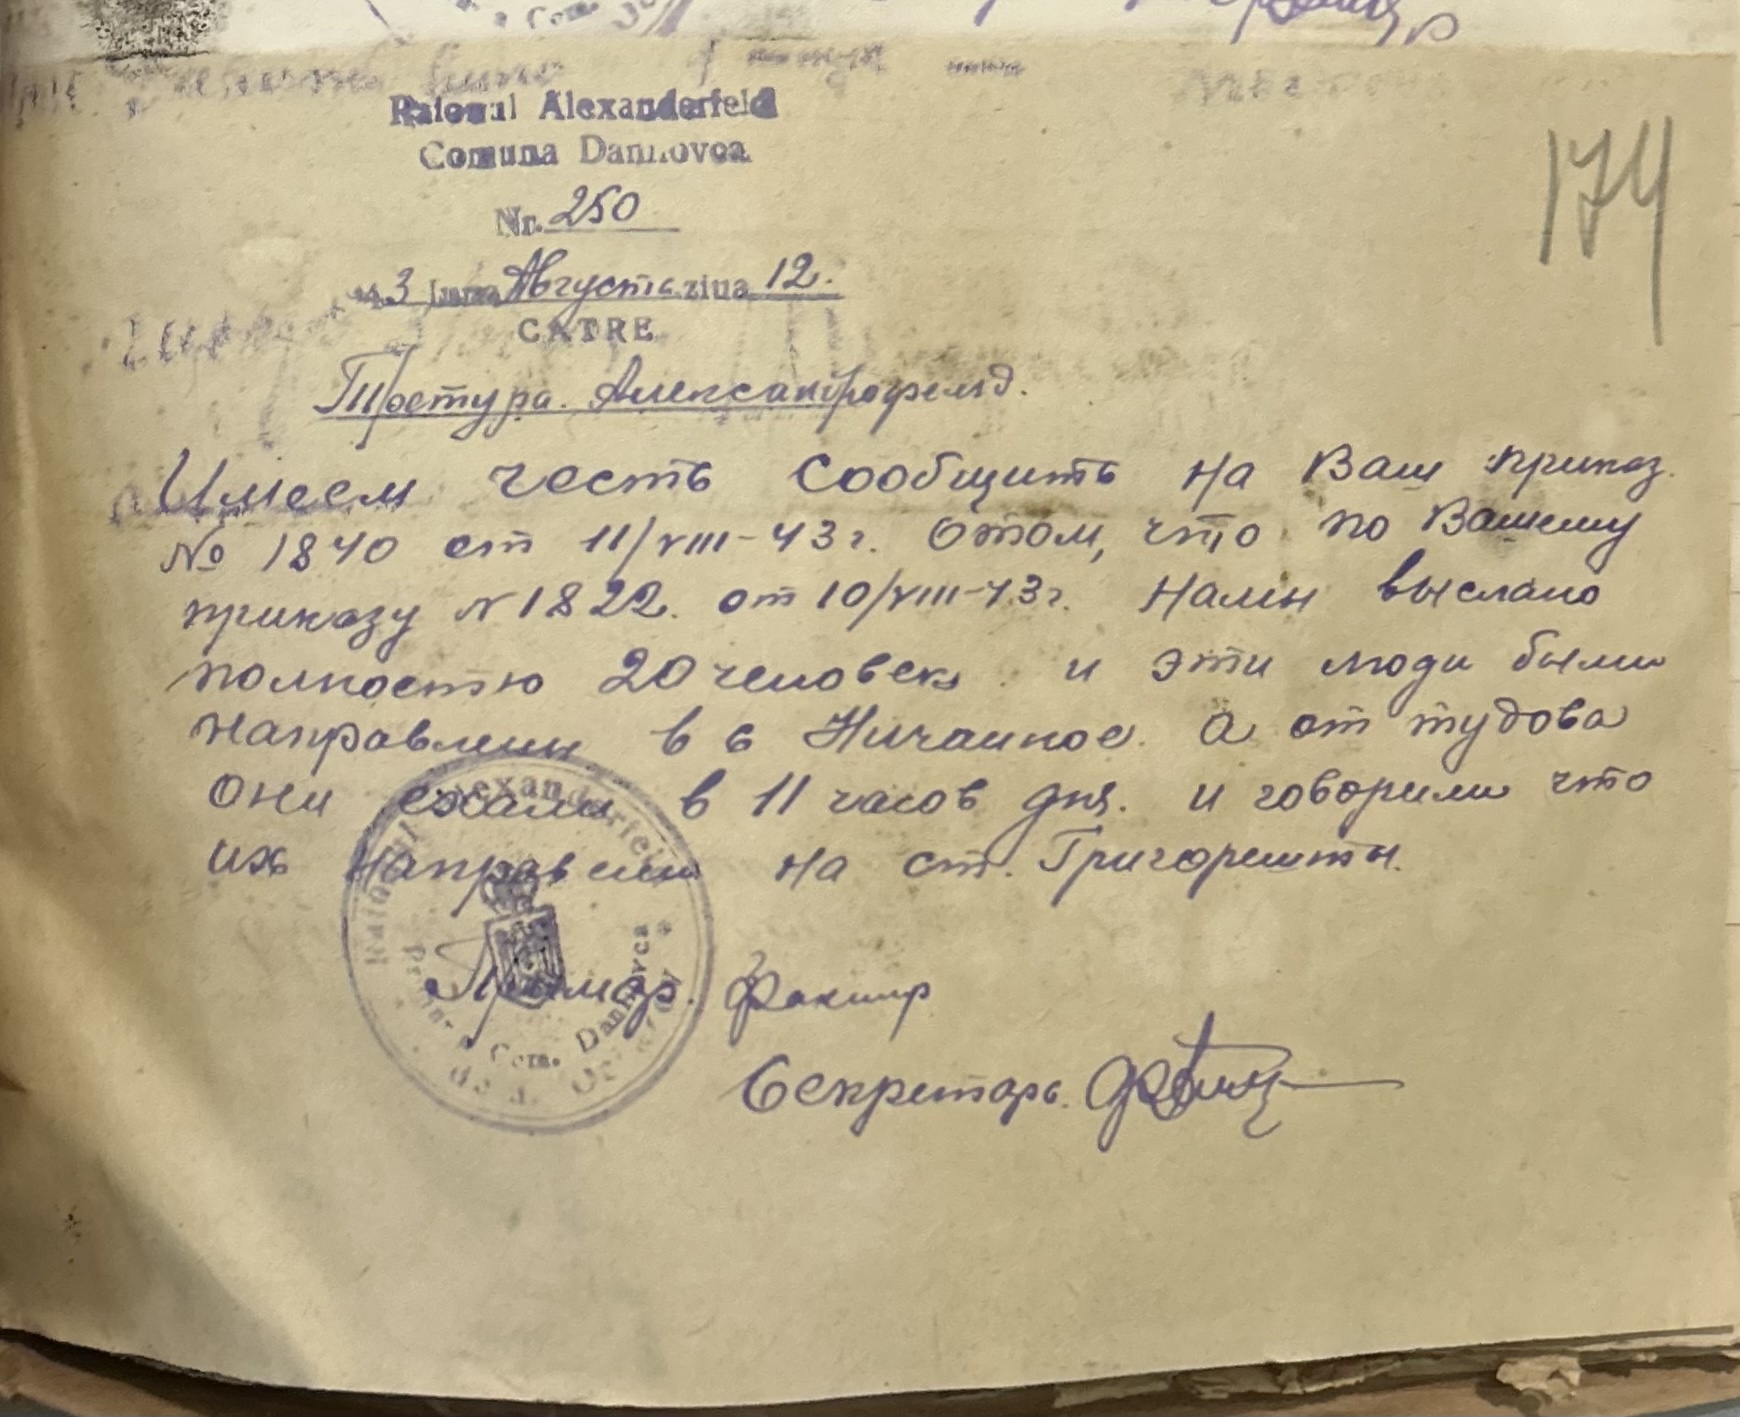 Raionul Alexanderfeld
Comuna Danilovca
Nr. 250
43 Luna Августа ziua 12.
CATRE
Претура. Александрофельд.
174
Имеем честь сообщить на Ваш приказ.
№ 1840 от 11/VIII-43 г. Отом, что по Вашему
приказу N 1822. от 10/VIII-43 г. Нами выслано
полностю 20 человек и эти люди были
направлены в с Ничаиное. А от тудова
они ехали в 11 часов дня. и говорили что
их направели на ст. Григорешты.
Raionul Alexanderfeld
Com. Danilovca
Примар.
Секретарь.